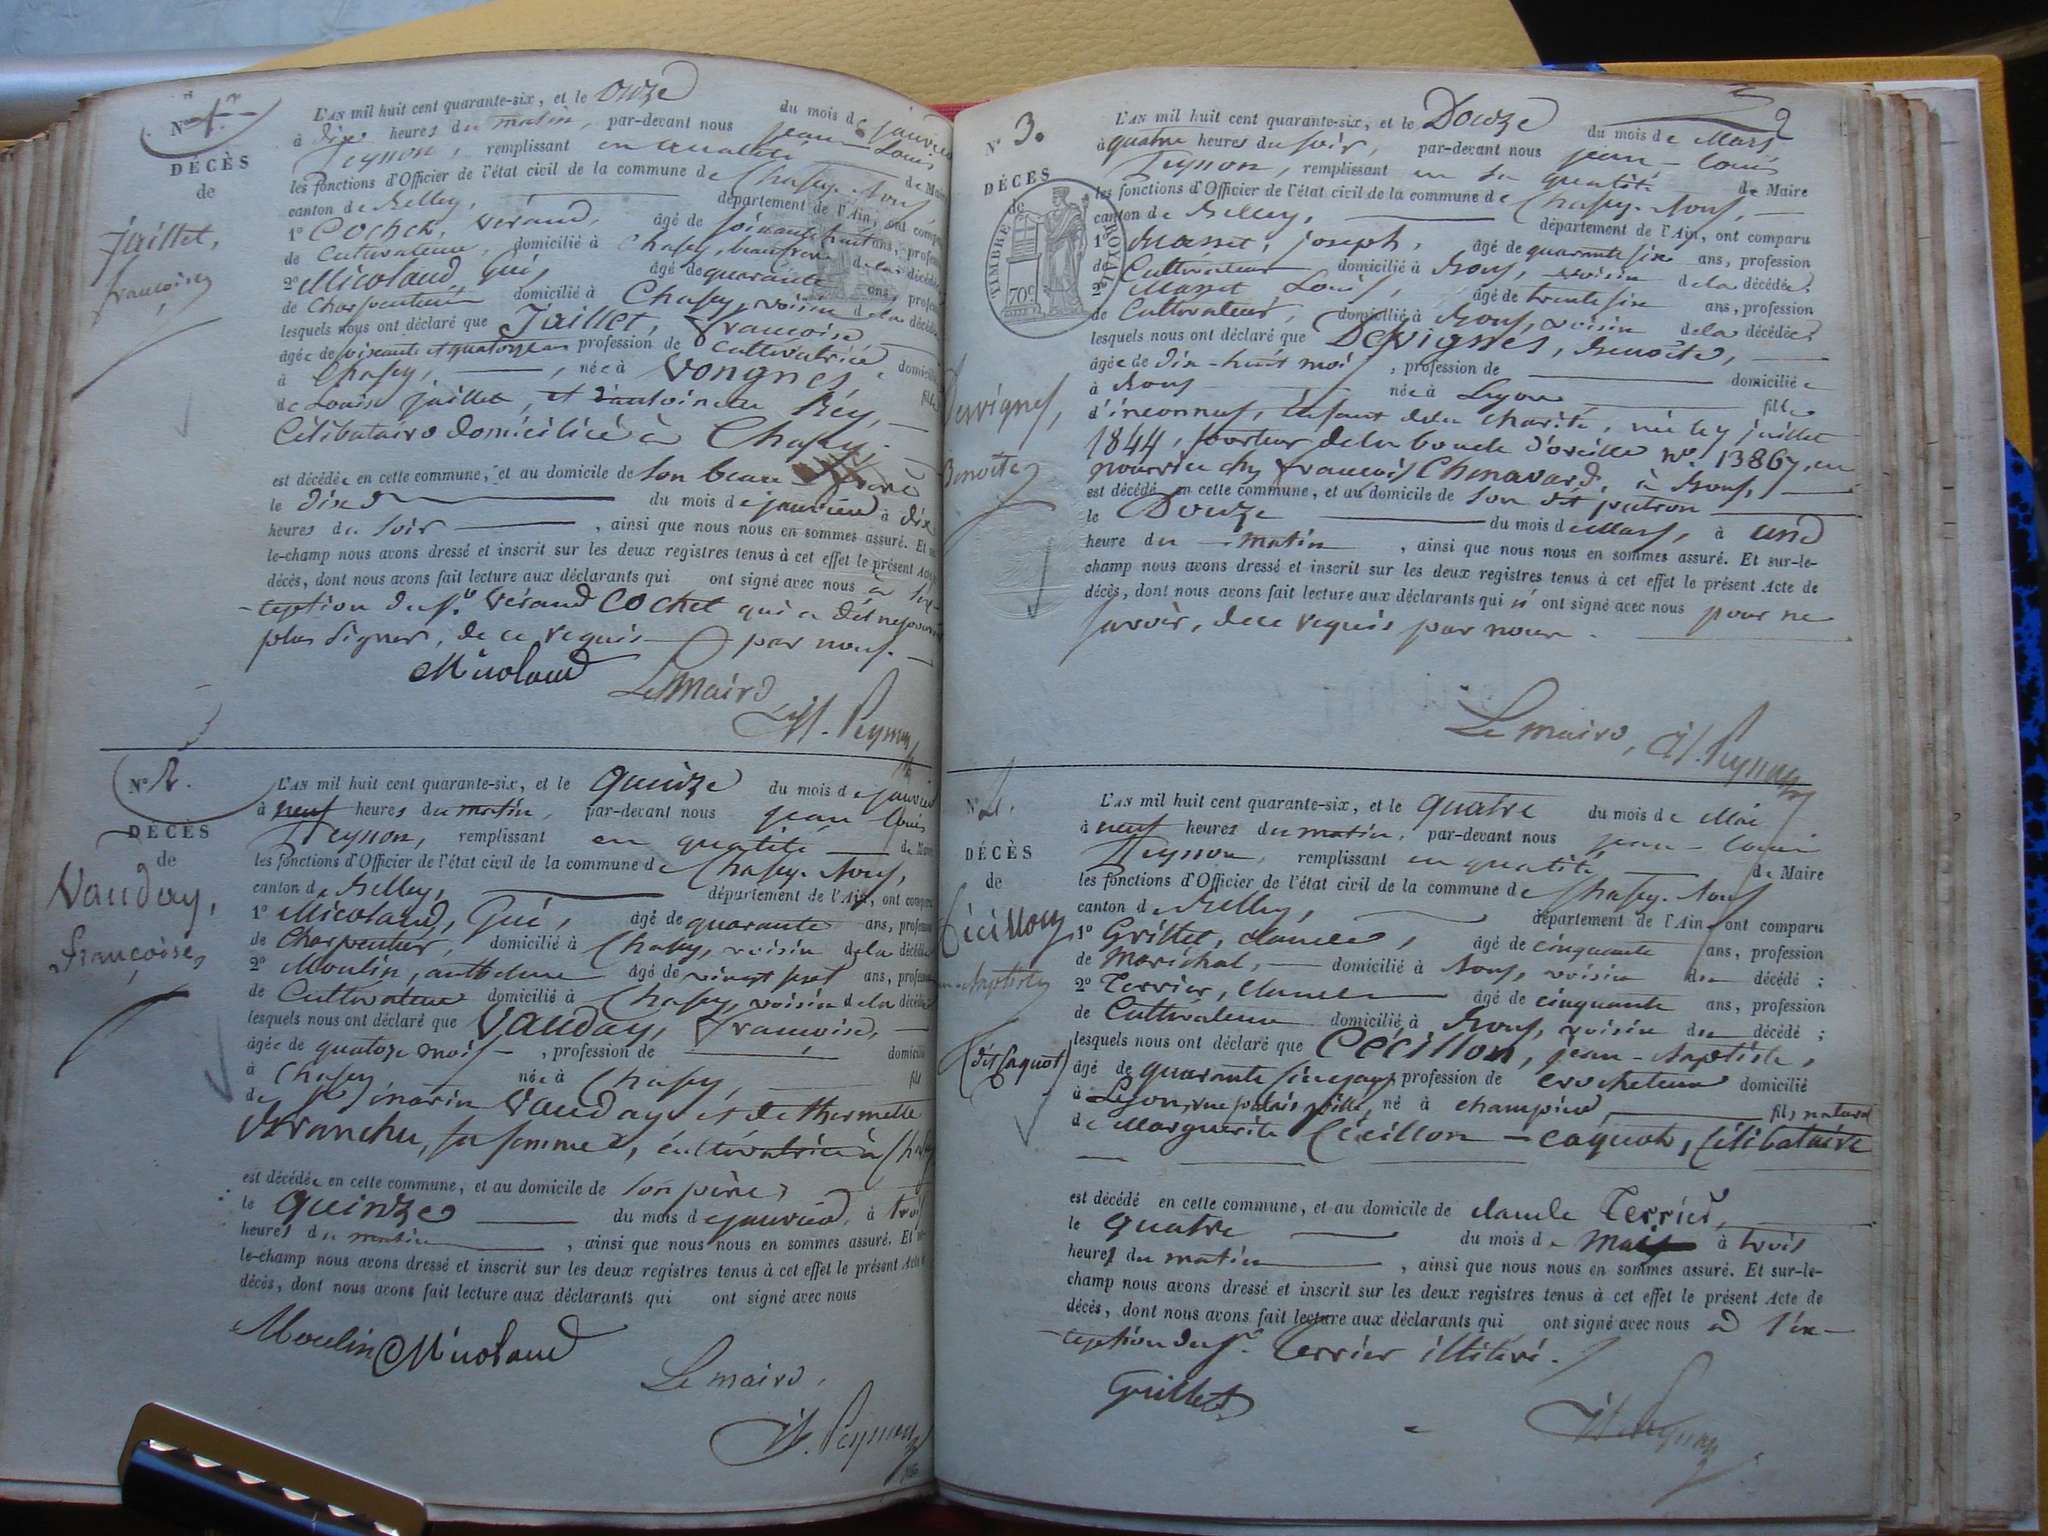 N.º 1.er
DÉCÈS
de
Jaillet,
françoise,
L'AN mil huit cent quarante-six, et le onze du mois de janvier
à dix heures du matin, par-devant nous jean Louis
Peysson, remplissant en qualité de Maire
les fonctions d'Officier de l'état civil de la commune de Chasey-Bons,
canton de Belley, département de l'Ain, ont comparu
1º Cochet, Vérand, âgé de soixante huit ans, profession
de Cultivateur, domicilié à Chasey, beaufrère de la décédée
2º Micoland, Gui, âgé de quarante ans, profession
de Charpentier domicilié à Chasey, voisin de la décédée
lesquels nous ont déclaré que Jaillet, françoise,
âgée de soixante et quatorze ans profession de cultivatrice, domiciliée
à Chasey, née à Vongnes, fille
de Louis Jaillet, et d'antoinette Rey,
Célibataire domiciliée à Chasey,
est décédée en cette commune, et au domicile de son beau frère
le dix du mois de janvier à dix
heures du soir, ainsi que nous nous en sommes assuré. Et sur-
le-champ nous avons dressé et inscrit sur les deux registres tenus à cet effet le présent Acte
décès, dont nous avons fait lecture aux déclarants qui ont signé avec nous à l'ex-
-ception du s.r Vérand Cochet qui a dit ne pouvoir
plus signer, de ce requis par nous.
Micoland
Le maire
J.L. Peysson
N.º 2.
DÉCÈS
de
Vauday,
françoise,
L'AN mil huit cent quarante-six, et le quinze du mois de janvier
à neuf heures du matin, par-devant nous jean Louis
Peysson, remplissant en qualité de Maire
les fonctions d'Officier de l'état civil de la commune de Chasey-Bons,
canton de Belley, département de l'Ain, ont comparu
1º Micoland, Gui, âgé de quarante ans, profession
de Charpentier, domicilié à Chasey, voisin de la décédée
2º Moulin, anthelme âgé de vingt sept ans, profession
de Cultivateur domicilié à Chasey, voisin de la décédée
lesquels nous ont déclaré que Vauday, françoise,
âgée de quatorze mois, profession de domiciliée
à Chasey née à Chasey, fille
de Vauday et de thermette
Branche, sa femme, cultivatrice à Chasey
est décédée en cette commune, et au domicile de son père,
le quinze du mois de janvier, à trois
heures du matin, ainsi que nous nous en sommes assuré. Et sur-
le-champ nous avons dressé et inscrit sur les deux registres tenus à cet effet le présent Acte de
décès, dont nous avons fait lecture aux déclarants qui ont signé avec nous
Moulin Micoland
Le maire,
J.L. Peysson
2
N.º 3.
DÉCÈS
de
TIMBRE ROYAL
70 c
Desvignes,
Benoîte,
L'AN mil huit cent quarante-six, et le Douze du mois de Mars
à quatre heures du soir, par-devant nous jean-Louis
Peysson, remplissant en sa qualité de Maire
les fonctions d'Officier de l'état civil de la commune de Chasey-Bons,
canton de Belley, département de l'Ain, ont comparu
1º Masset, joseph, âgé de quarante six ans, profession
de Cultivateur domicilié à Bons, voisin de la décédée;
2º Masset Louis, âgé de trente six ans, profession
de Cultivateur, domicilié à Bons, voisin de la décédée
lesquels nous ont déclaré que Desvignes, Benoîte,
âgée de dix-huit mois, profession de domiciliée
à Bons née à Lyon fille
d'inconnus, Enfant de la charité, née le 7 juillet
1844, porteur de la boucle d'oreille nº 13867, en
nourrice chez françois Chenavard, à Bons,
est décédé en cette commune, et au domicile de son dit patron
le Douze du mois de Mars, à une
heure du matin, ainsi que nous nous en sommes assuré. Et sur-le-
champ nous avons dressé et inscrit sur les deux registres tenus à cet effet le présent Acte de
décès, dont nous avons fait lecture aux déclarants qui n'ont signé avec nous pour ne
savoir, de ce requis par nous.
Le maire, J.L. Peysson
N.º 4.
DÉCÈS
de
Cécillon
jean-Baptiste
(dit Caquot)
L'AN mil huit cent quarante-six, et le quatre du mois de Mai
à neuf heures du matin, par-devant nous jean-Louis
Peysson, remplissant en qualité de Maire
les fonctions d'Officier de l'état civil de la commune de Chasey-Bons
canton de Belley, département de l'Ain, ont comparu
1º Grillet, claude, âgé de cinquante ans, profession
de Maréchal, domicilié à Bons, voisin du décédé;
2º Terrier, Claude âgé de cinquante ans, profession
de Cultivateur domicilié à Bons, voisin du décédé;
lesquels nous ont déclaré que Cécillon, jean-Baptiste,
âgé de quarante cinq ans, profession de crocheteur domicilié
à Lyon, rue né à champier, fils naturel
de Marguerite Cécillon-Caquot, Célibataire
est décédé en cette commune, et au domicile de claude Terrier,
le quatre du mois de Mai à trois
heures du matin, ainsi que nous nous en sommes assuré. Et sur-le-
champ nous avons dressé et inscrit sur les deux registres tenus à cet effet le présent Acte de
décès, dont nous avons fait lecture aux déclarants qui ont signé avec nous à l'ex-
-ception du s.r Terrier illitéré.
Grillet
J.L. Peysson